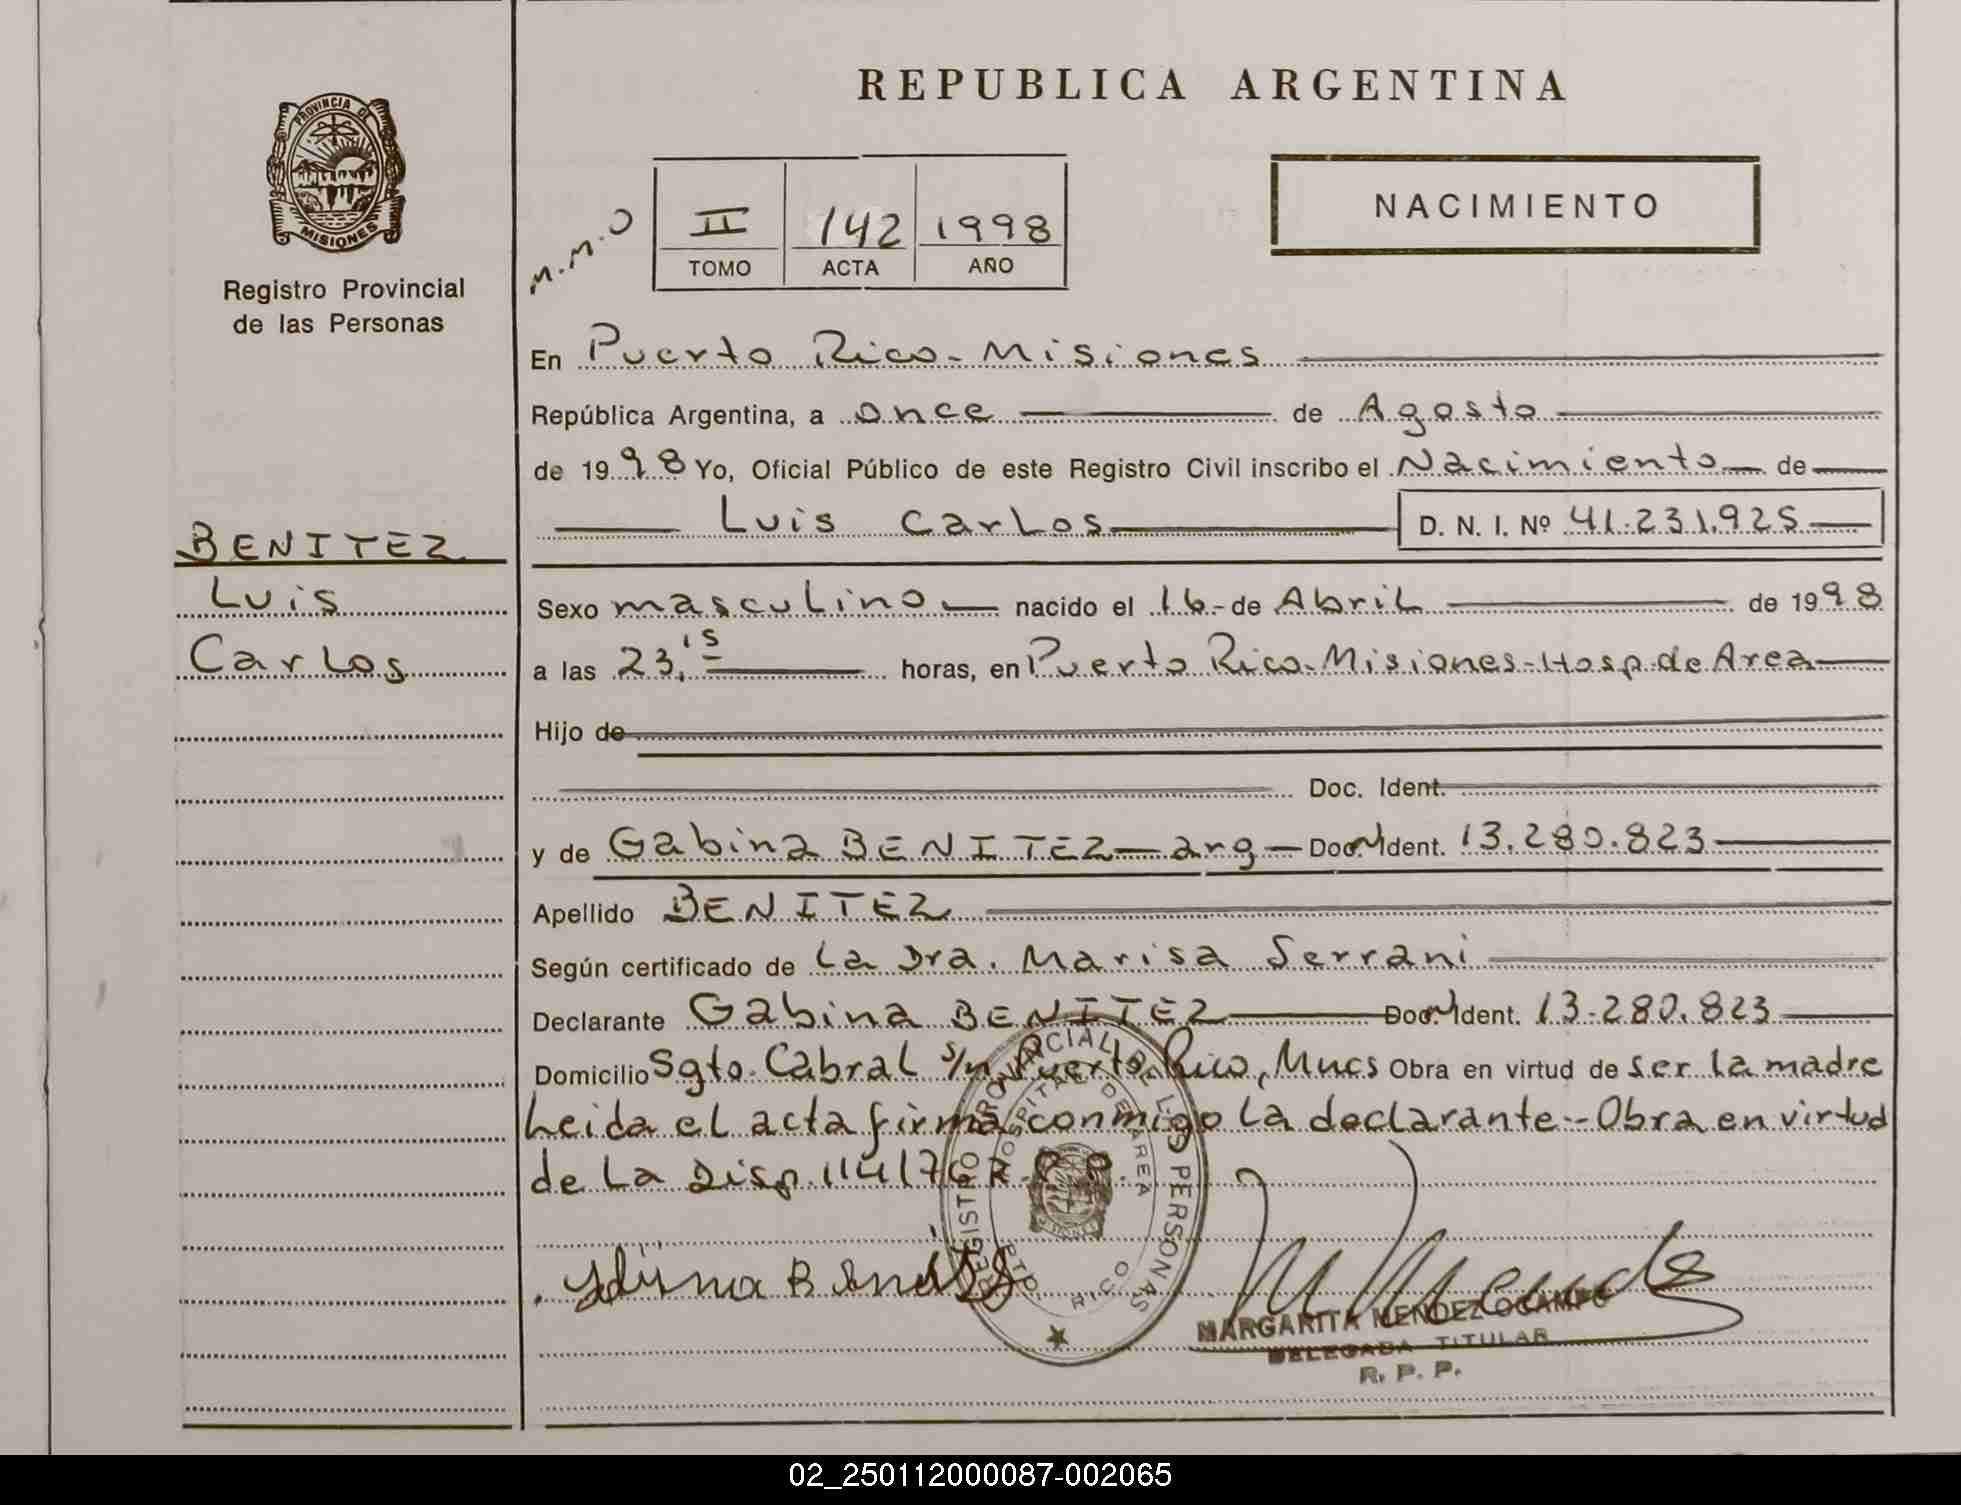 PROVINCIA DE
MISIONES
Registro Provincial
de las Personas
BENITEZ
Luis
Carlos
REPUBLICA ARGENTINA
M.M.O
II 142 1998
TOMO ACTA AÑO
NACIMIENTO
En Puerto Rico-Misiones
República Argentina, a once de Agosto
de 1998 Yo, Oficial Público de este Registro Civil inscribo el Nacimiento de
Luis Carlos D. N. I. Nº 41.231.925
Sexo masculino nacido el 16-de Abril de 1998
a las 23,15 horas, en Puerto Rico-Misiones-Hosp.de Area
Hijo de
Doc. Ident.
y de Gabina BENITEZ-arg- Doc. Ident. 13.280.823
Apellido BENITEZ
Según certificado de La Dra. Marisa Serrani
Declarante Gabina BENITEZ Doc. Ident. 13.280.823
Domicilio Sgto. Cabral s/n Puerto Rico, Mnes Obra en virtud de ser la madre
Leida el acta firma conmigo la declarante-Obra en virtud
de la Disp. 114/76 R.P.P.
REGISTRO PROVINCIAL DE LAS PERSONAS
HOSPITAL DE AREA
PTO RICO
MARGARITA MENDEZ OCAMPO
DELEGADA TITULAR
R. P. P.
02_250112000087-002065